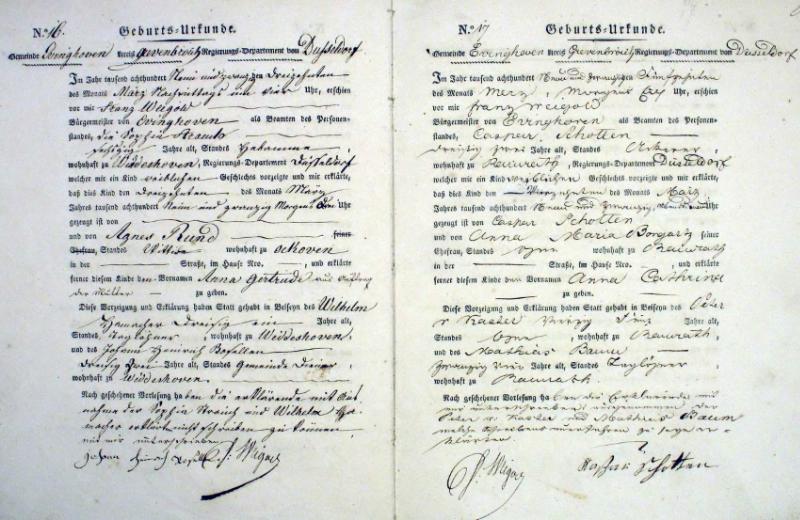 No. 16. Geburts-Urkunde.
Gemeinde Evinghoven Kreis Grevenbroich Regierungs-Departement von Düsseldorf
Im Jahr tausend achthundert Neun und zwanzig den Dreizehnten
des Monats März Nachmittags um vier Uhr, erschien
vor mir Franz Weigold
Bürgermeister von Evinghoven als Beamten des Personen-
standes, die Sophia
fünfzig Jahre alt, Standes Hebamme
wohnhaft zu Widdeshoven, Regierungs-Departement Düsseldorf
welcher mir ein Kind weiblichen Geschlechts vorzeigte und mir erklärte,
daß dies Kind den Dreizehnten des Monats März
Jahres tausend achthundert Neun und zwanzig Morgens drei Uhr
gezeugt ist von
und von Agnes Rund seiner
Ehefrau, Standes wohnhaft zu Oekoven
in der Straße, im Hause Nro. , und erklärte
ferner diesem Kinde den Vornamen Anna Gertrude aus
der Mutter zu geben.
Diese Vorzeigung und Erklärung haben Statt gehabt in Beiseyn des Wilhelm
Hamacher dreißig ein Jahre alt,
Standes Taglöhner, wohnhaft zu Widdeshoven,
und des Johann Heinrich
dreißig zwei Jahre alt, Standes Gemeinde Diener
wohnhaft zu Widdeshoven.
Nach geschehener Vorlesung haben die erklärende mit Aus-
nahme der Sophia und Wilhelm Ha-
macher erklärt nicht schreiben zu können
mit mir unterschrieben
Johan
No. 17 Geburts-Urkunde.
Gemeinde Evinghoven Kreis Grevenbroich Regierungs-Departement von Düsseldorf
Im Jahr tausend achthundert Neun und zwanzig den Fünfzehnten
des Monats Merz, Morgens Uhr, erschien
vor mir Franz Weigold
Bürgermeister von Evinghoven als Beamten des Personen-
standes, Caspar Schotten
dreißig zwei Jahre alt, Standes Ackerer
wohnhaft zu Ramrath, Regierungs-Departement Düsseldorf
welcher mir ein Kind weiblichen Geschlechts vorzeigte und mir erklärte,
daß dies Kind den Vierzehnten des Monats März
Jahres tausend achthundert Neun und zwanzig Uhr
gezeugt ist von Caspar Schotten
und von Anna Maria seiner
Ehefrau, Standes wohnhaft zu Ramrath
in der Straße, im Hause Nro. , und erklärte
ferner diesem Kinde den Vornamen Anna Cathrina
zu geben.
Diese Vorzeigung und Erklärung haben Statt gehabt in Beiseyn des Peter
Jahre alt,
Standes wohnhaft zu Ramrath
und des Mathias Baum
zwanzig Jahre alt, Standes Taglöhner
wohnhaft zu Ramrath.
Nach geschehener Vorlesung haben die Erklärende mit
mir unterschrieben ausgenommen der
Peter und Mathias Baum
welche Schreibens unerfahren zu seyn er-
klärten.
Schotten